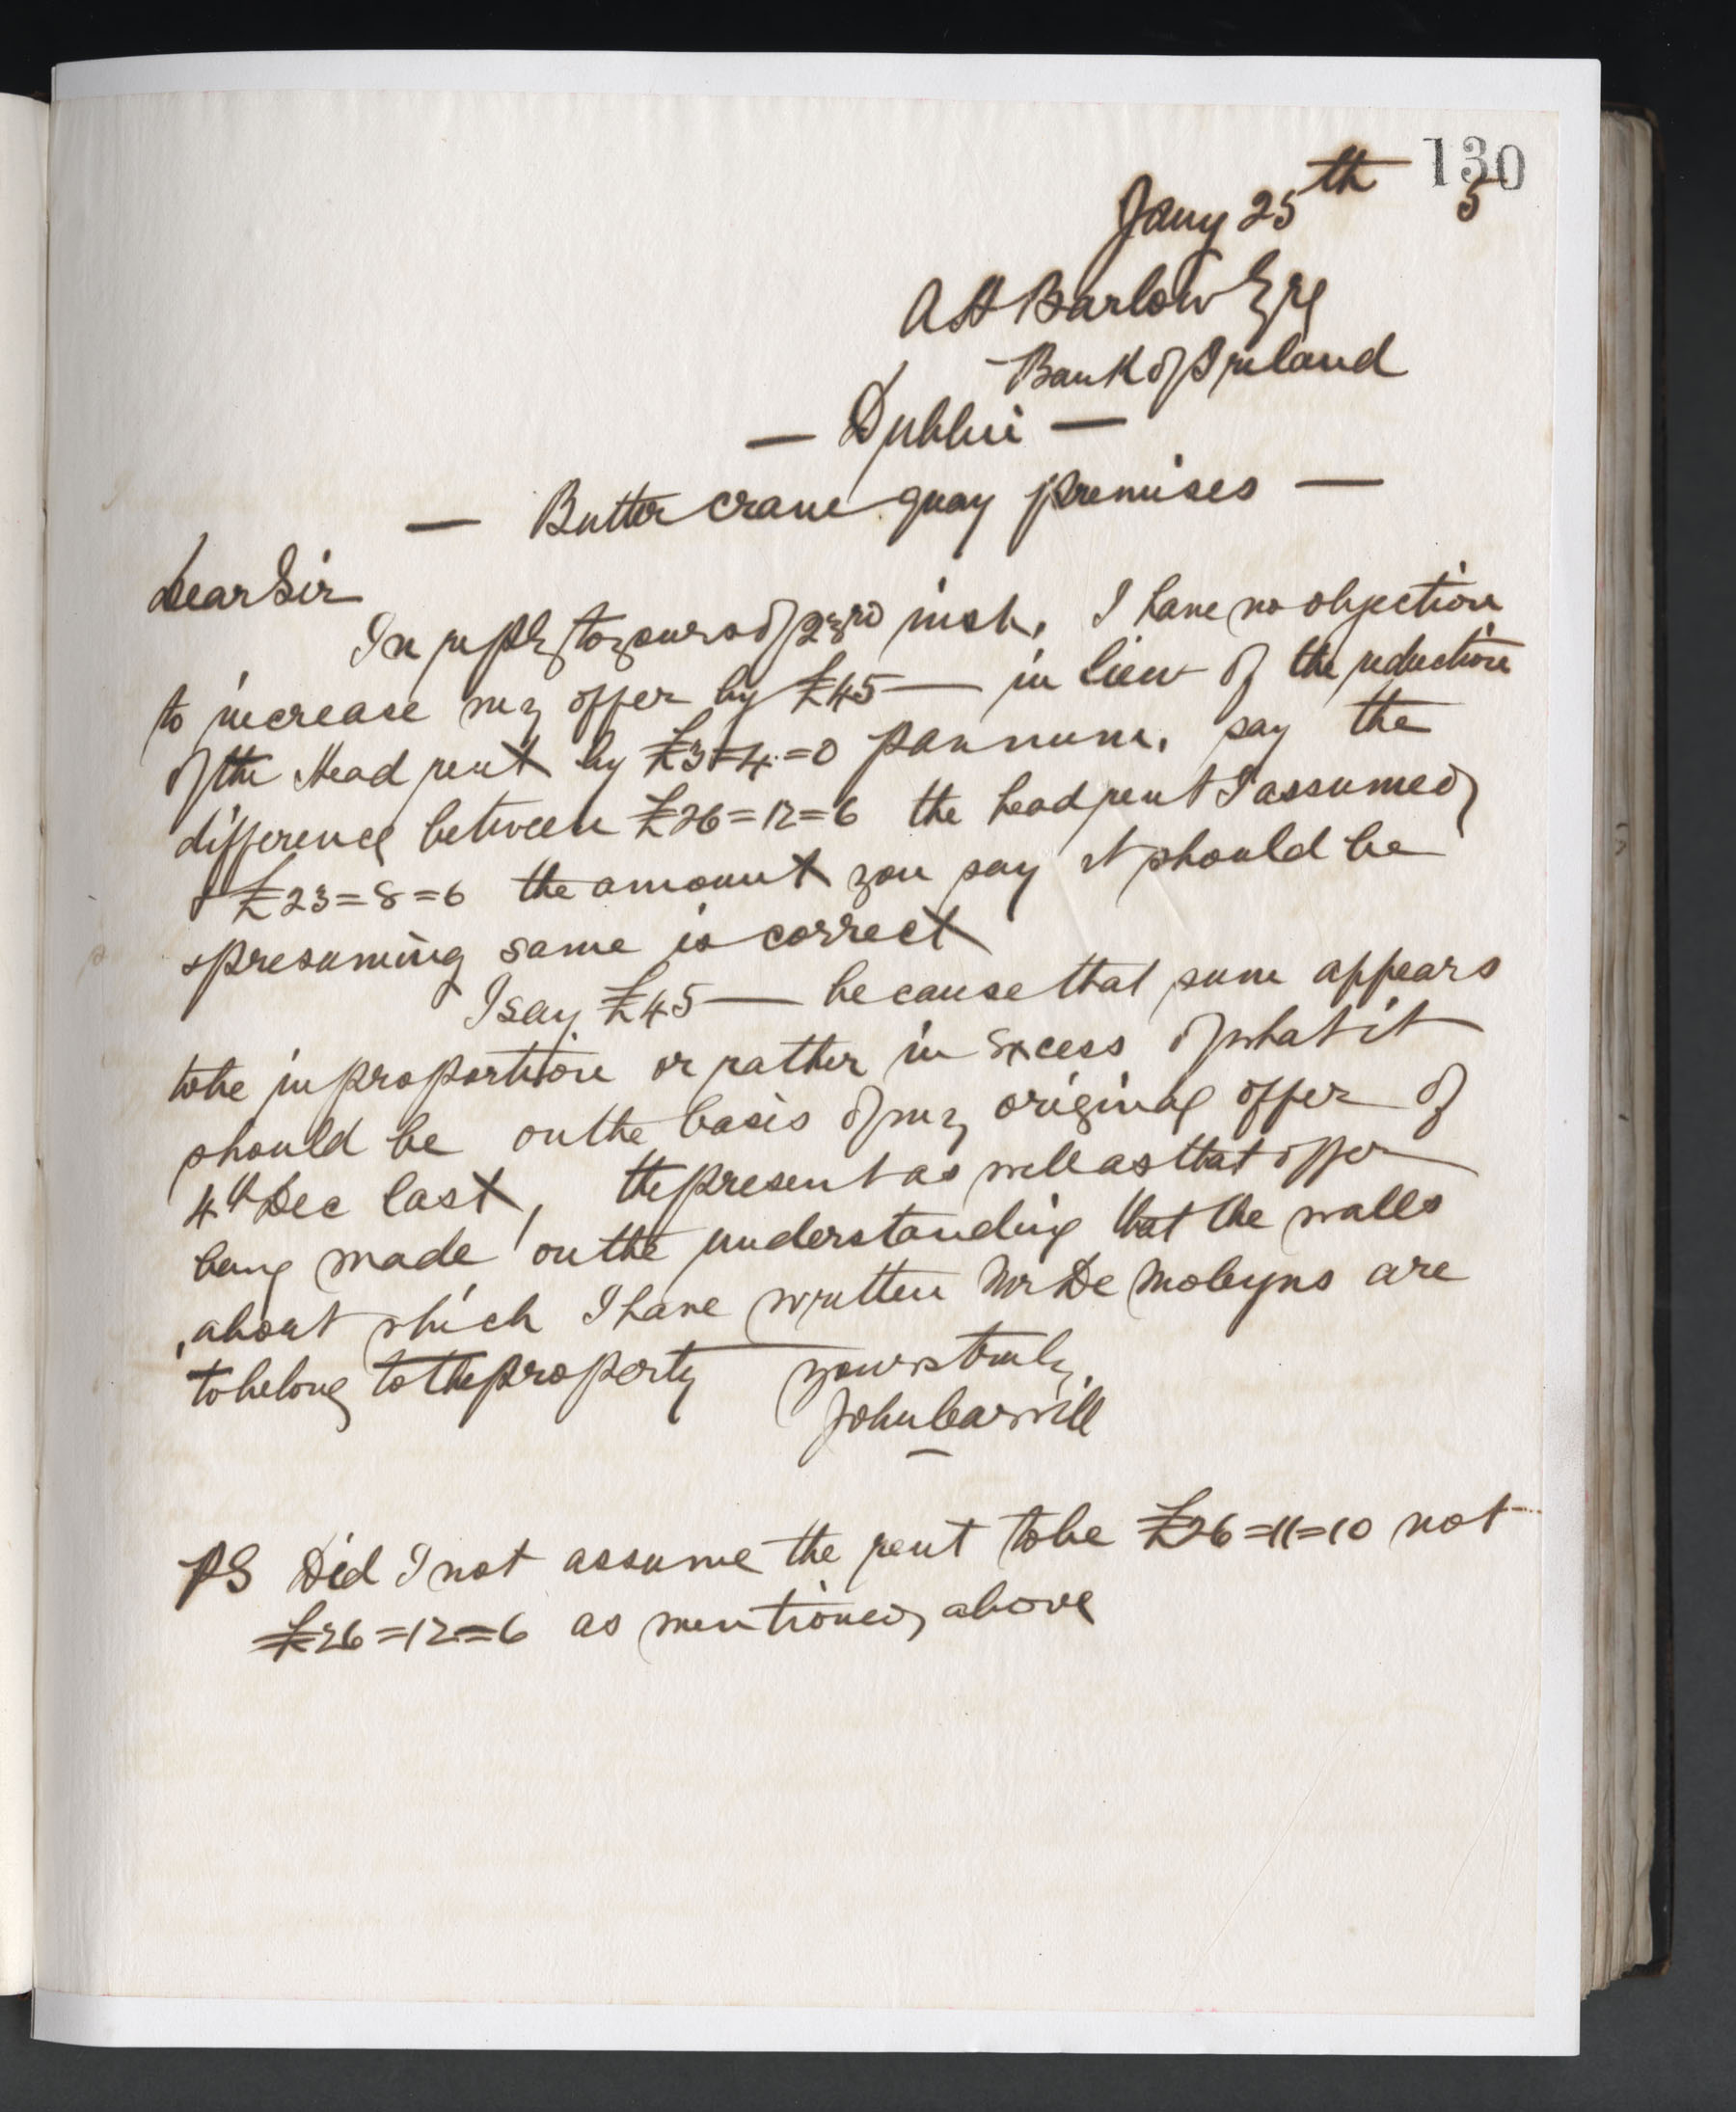 130
Jany 25th 5
A H Barlow Esq
Bank of Ireland
— Dublin —
— Butter crane quay premises —
Dear Sir
In reply to yours of 23rd inst, I have no objection
to increase my offer by £45 — in lieu of the reduction
of the Head rent by £3=4=0 p annum, say the
difference between £26=12=6 the head rent I assumed
& £23=8=6 the amount you say it should be
& presuming same is correct
I say £45 — because that sum appears
to be in proportion or rather in excess of what it
should be on the basis of my original offer of
4th Dec last, the present as well as that offer
being made on the understanding that the walls
about which I have written Mr De Moleyns are
to belong to the property yours truly
John Carvill
PS Did I not assume the rent to be £26=11=10 not
£26=12=6 as mentioned above